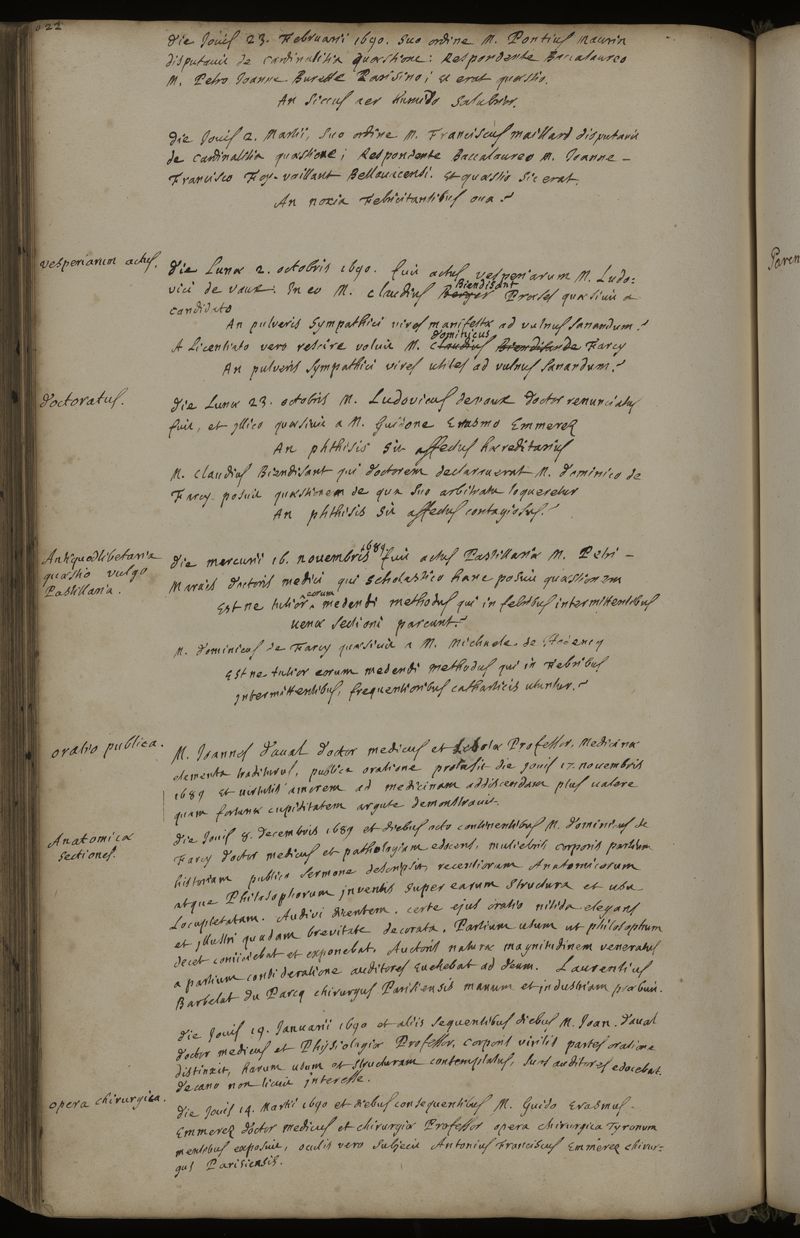 22
die Jovis 23. Februarii 1690. suo ordine M. Pontius Maurin
disputavit de cardinalitia quæstione: Respondente Baccalaureo
M. Petro Joanne Burette Parisino; et erat quæstio.
An siccus aer humido salubrior.
die Jovis 2. Martii, suo ordine M. Franciscus maillard disputavit
de cardinalitia quæstione; Respondente Baccalaureo M. Joanne -
Francisco Foy-vaillant Bellovacensi. Et quæstio sic erat.
An noxia Febricitantibus ova?
vesperiarum actus.
die Lunæ 2. octobris 1690. fuit actus vesperiarum M. Ludo-
vici de vaux: In eo M. claudius Berger Biendisant Præses quæsivit a
candidato
An pulveris sympathici vires manifestæ ad vulnus sanandum?
A Licentiato vero rescire voluit M. Claudius dominicus Biendisant de Farcy
An pulveris sympathici vires utiles ad vulnus sanandum?
doctoratus.
die Lunæ 23. octobris M. Ludovicus devaux doctor renunciatus
fuit, et illico quæsivit a M. Guidone Erasmo Emmerez
An phthisis sit affectus hæreditarius
M. claudius Biendisant qui doctorem declaraverat M. dominico de
Farcy posuit quæstionem de qua suo arbitratu loqueretur
An phthisis sit affectus contagiosus?
Antiquodlibetaria
quæstio vulgo
Pastillaria.
die mercurii 16. novembris 1689 fuit actus Pastillariæ M. Petri -
Marais doctoris medici qui scholastico hanc posuit quæstionem
Est ne tutior eorum medendi methodus qui in febribus intermittentibus
venæ sectioni parcunt?
M. dominicus de Farcy quæsivit a M. Michaele de
Est ne tutior eorum medendi methodus qui in Febribus
intermittentibus, frequentioribus catharticis utuntur?
oratio publica.
M. Joannes d'aval doctor medicus et scholæ Professor. Medicinæ
elementa traditurus, publica oratione probavit die Jovis 17. novembris
1689 et virtutis amorem ad medicinam addiscendam plus valere
quam fortunæ cupiditatem argute demonstravit.
Anatomicæ
sectiones.
die Jovis 8. decembris 1689 et diebus octo continentibus M. dominicus de
Farcy doctor medicus et pathologiam edocens, muliebris corporis partium
historiam publico sermone descripsit, recentiorum Anatomicorum
atque Philosophorum inventis super earum structura et usu
Locupletatam. Audivi dicentem. certe ejus oratio nitida elegans
et illustri quadam brevitate decorata. Partium usum ut philosophum
decet conjiciebat et exponebat, Auctoris naturæ magnitudinem veneratus
a partium consideratione auditores evehebat ad deum. Laurentius
Barbelat du Parcq chirurgus Parisiensis manum et industriam præbuit.
die Jovis 19. Januarii 1690 et aliis sequentibus diebus M. Joan. d'aval
doctor medicus et Physiologiæ Professor, corporis virilis partes oratione
distinxit, harum usum et structuram contemplatus, suos auditores edocebat.
decano non licuit interesse.
opera chirurgica.
die Jovis 14. Martii 1690 et diebus consequentibus M. Guido Erasmus -
Emmerez doctor medicus et chirurgiæ Professor opera chirurgica Tyronum
mentibus exposuit, oculis vero subjecit Antonius Franciscus Emmerez chirur-
gus Parisiensis.
Paren